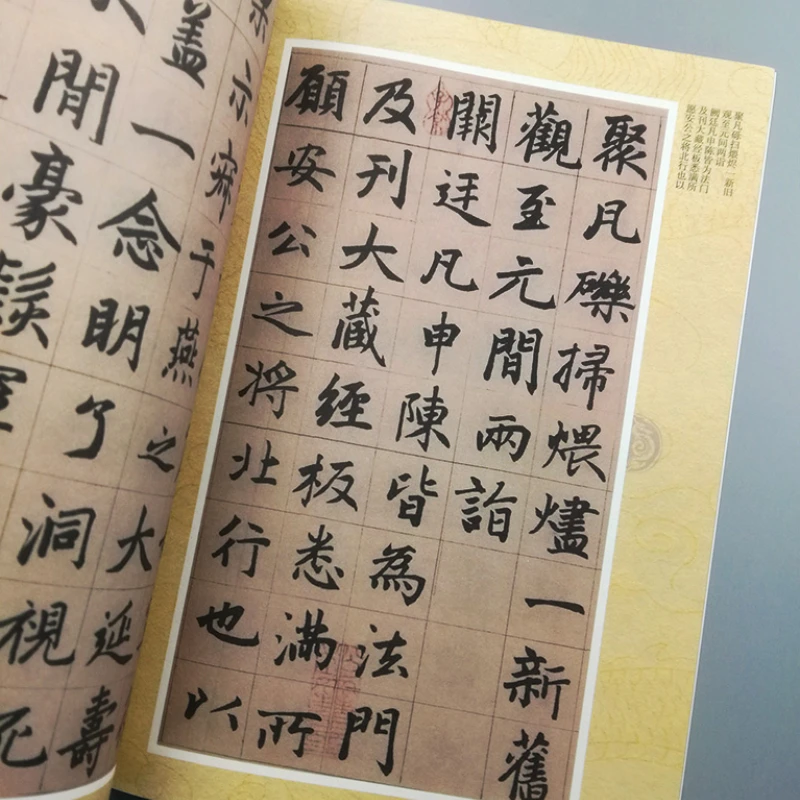 聚凡礫掃煨燼一新舊
觀至元間兩詣
闕廷凡申陳皆為法門
及刊大藏經板悉滿所
願安公之將北行也以
聚凡砾扫煨烬一新旧
观至元间两诣
阙廷凡申陈皆为法门
及刊大藏经板悉满所
愿安公之将北行也以
示寂于燕之大延壽
蓋一念明了洞視死
間豪髮